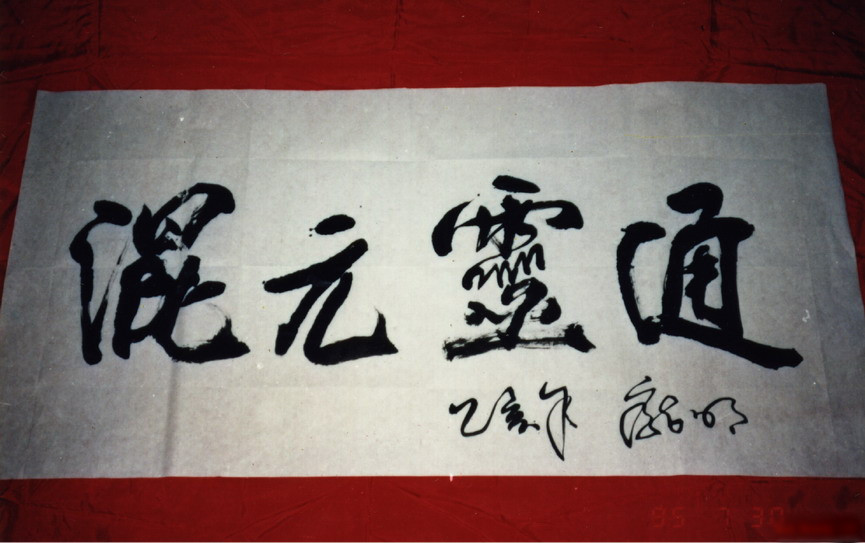 混元靈通
乙亥年
95 7 30